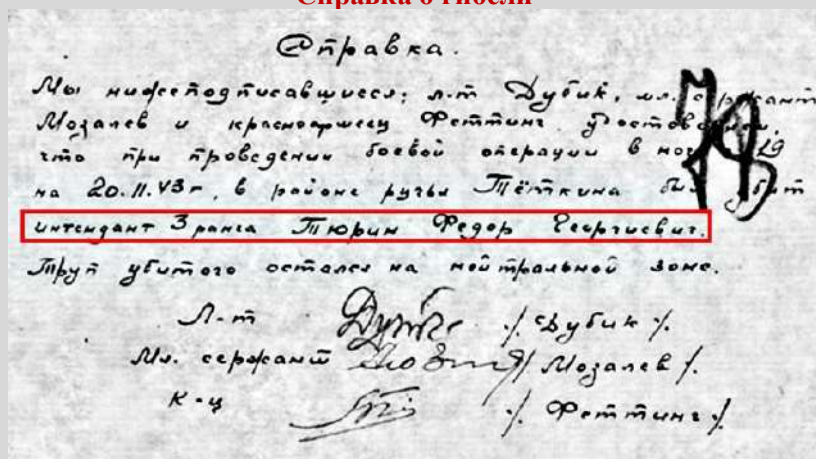 Справка о гибели
Справка.
Мы нижеподписавшиеся; л-т Дубик, мл. сержант
Мозалев и красноармеец Феттинг
что при проведении боевой операции в 19
на 20.11.43 г, в районе ручья Тёткина был убит
интендант 3 ранга Тюрин Федор Георгиевич.
Труп убитого остался на нейтральной зоне.
Л-т /. Дубик /.
Мл. сержант /. Мозалев /.
К-ц /. Феттинг /.